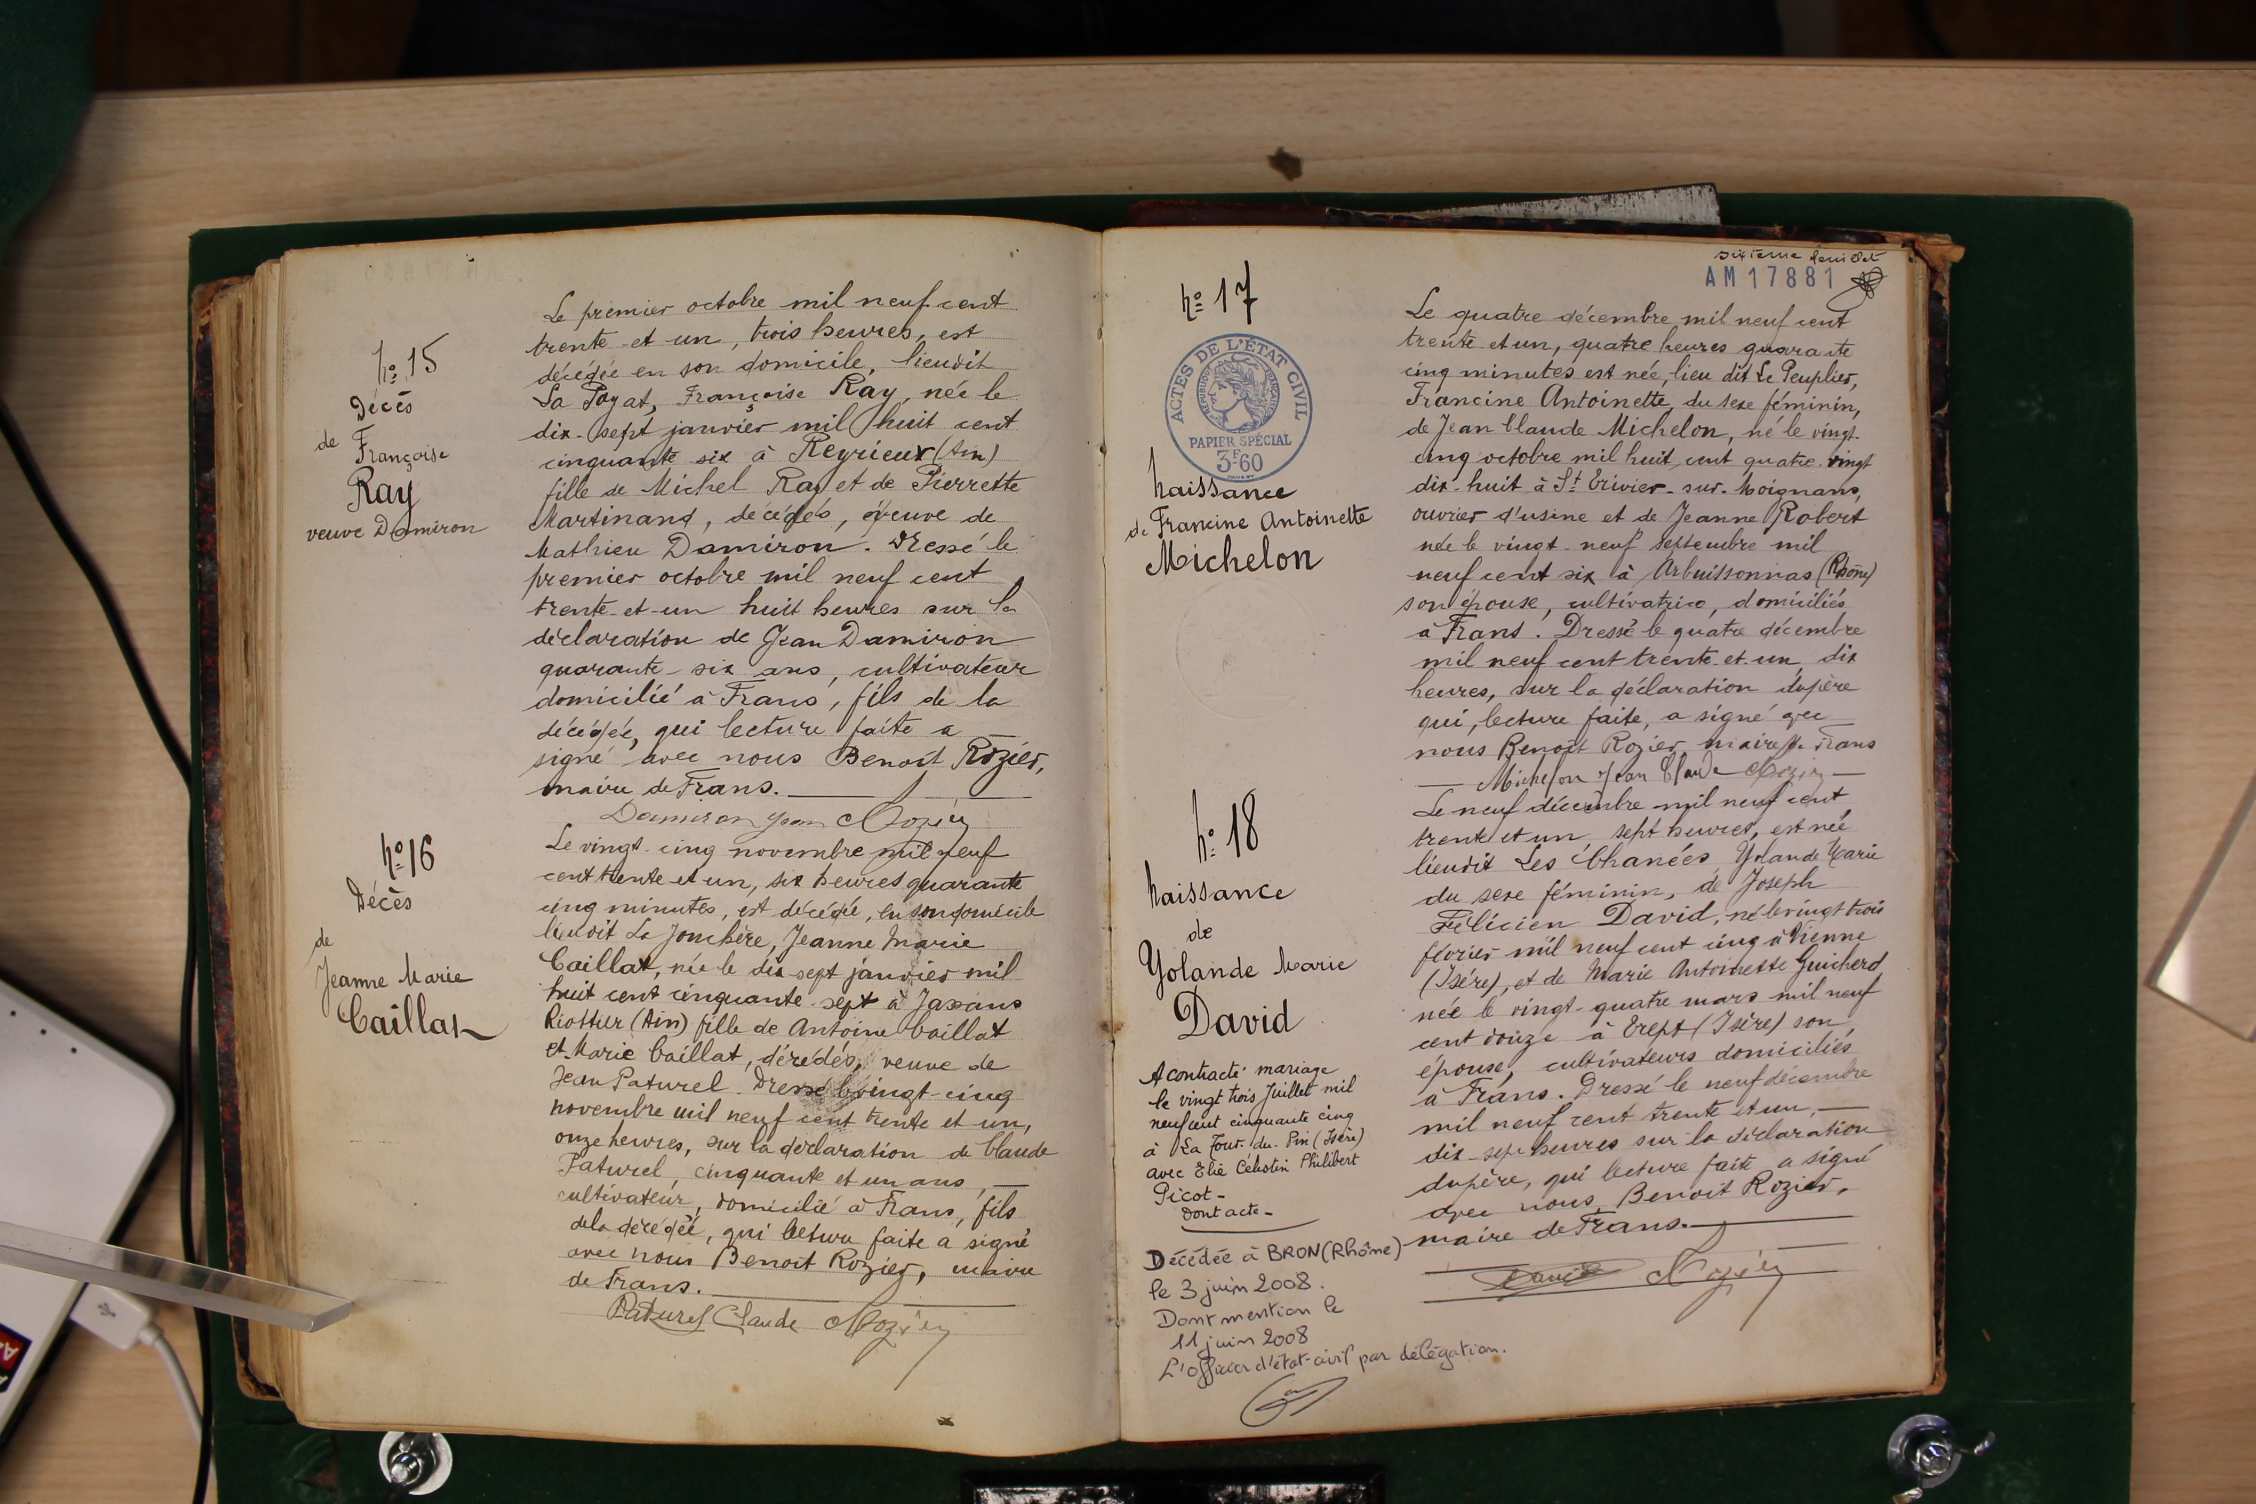 nº 15
Décès
de Françoise
Ray
veuve Damiron
Le premier octobre mil neuf cent
trente et un, trois heures, est
décédée en son domicile, lieudit
La Payat, Françoise Ray, née le
dix-sept janvier mil huit cent
cinquante six à Reyrieux (Ain)
fille de Michel Ray et de Pierrette
Martinand, décédés, veuve de
Mathieu Damiron. Dressé le
premier octobre mil neuf cent
trente-et-un huit heures sur la
déclaration de Jean Damiron
quarante-six ans, cultivateur
domicilié à Frans, fils de la
décédée, qui lecture faite a
signé avec nous Benoit Rozier,
maire de Frans.
Damiron Jean Rozier
nº 16
Décès
de
Jeanne Marie
Caillat
Le vingt-cinq novembre mil neuf
cent trente et un, six heures quarante
cinq minutes, est décédée, en son domicile
lieudit La Jonchère, Jeanne Marie
Caillat, née le dix sept janvier mil
huit cent cinquante-sept à Jassans
Riottier (Ain) fille de Antoine Caillat
et Marie Caillat, décédés, veuve de
Jean Paturel. Dressé le vingt-cinq
novembre mil neuf cent trente et un,
onze heures, sur la déclaration de Claude
Paturel, cinquante et un ans,
cultivateur, domicilié à Frans, fils
de la décédée, qui lecture faite a signé
avec nous Benoit Rozier, maire
de Frans.
Paturel Claude Rozier
sixième feuillet
AM 17881
nº 17
ACTES DE L'ÉTAT CIVIL
RÉPUBLIQUE FRANÇAISE
PAPIER SPÉCIAL
3F60
Naissance
de Francine Antoinette
Michelon
Le quatre décembre mil neuf cent
trente et un, quatre heures quarante
cinq minutes est née, lieu dit Le Peuplier,
Francine Antoinette, du sexe féminin,
de Jean Claude Michelon, né le vingt-
cinq octobre mil huit cent quatre-vingt
dix-huit à St Trivier-sur-Moignans,
ouvrier d'usine et de Jeanne Robert
née le vingt-neuf septembre mil
neuf cent six à Arbuissonnas (Rhône)
son épouse, cultivatrice, domiciliés
à Frans. Dressé le quatre décembre
mil neuf cent trente-et-un, dix
heures, sur la déclaration du père
qui, lecture faite, a signé avec
nous Benoit Rozier, maire de Frans
Michelon Jean Claude Rozier
nº 18
Naissance
de
Yolande Marie
David
Le neuf décembre mil neuf cent,
trente et un, sept heures, est née
lieudit Les Chanées, Yolande Marie
du sexe féminin, de Joseph
Félicien David, né le vingt trois
février mil neuf cent cinq à Vienne
(Isère), et de Marie Antoinette Guicherd
née le vingt-quatre mars mil neuf
cent douze à Creps (Isère) son
épouse, cultivateurs domiciliés
à Frans. Dressé le neuf décembre
mil neuf cent trente et un,
dix-sept heures sur la déclaration
du père, qui lecture faite a signé
avec nous, Benoit Rozier,
maire de Frans.
David Rozier
A contracté mariage
le vingt trois Juillet mil
neuf cent cinquante cinq
à La Tour-du-Pin (Isère)
avec Elie Célestin Philibert
Picot-
Dont acte-
Décédée à BRON (Rhône)
le 3 juin 2008.
Dont mention le
11 juin 2008
L'officier d'état-civil par délégation.